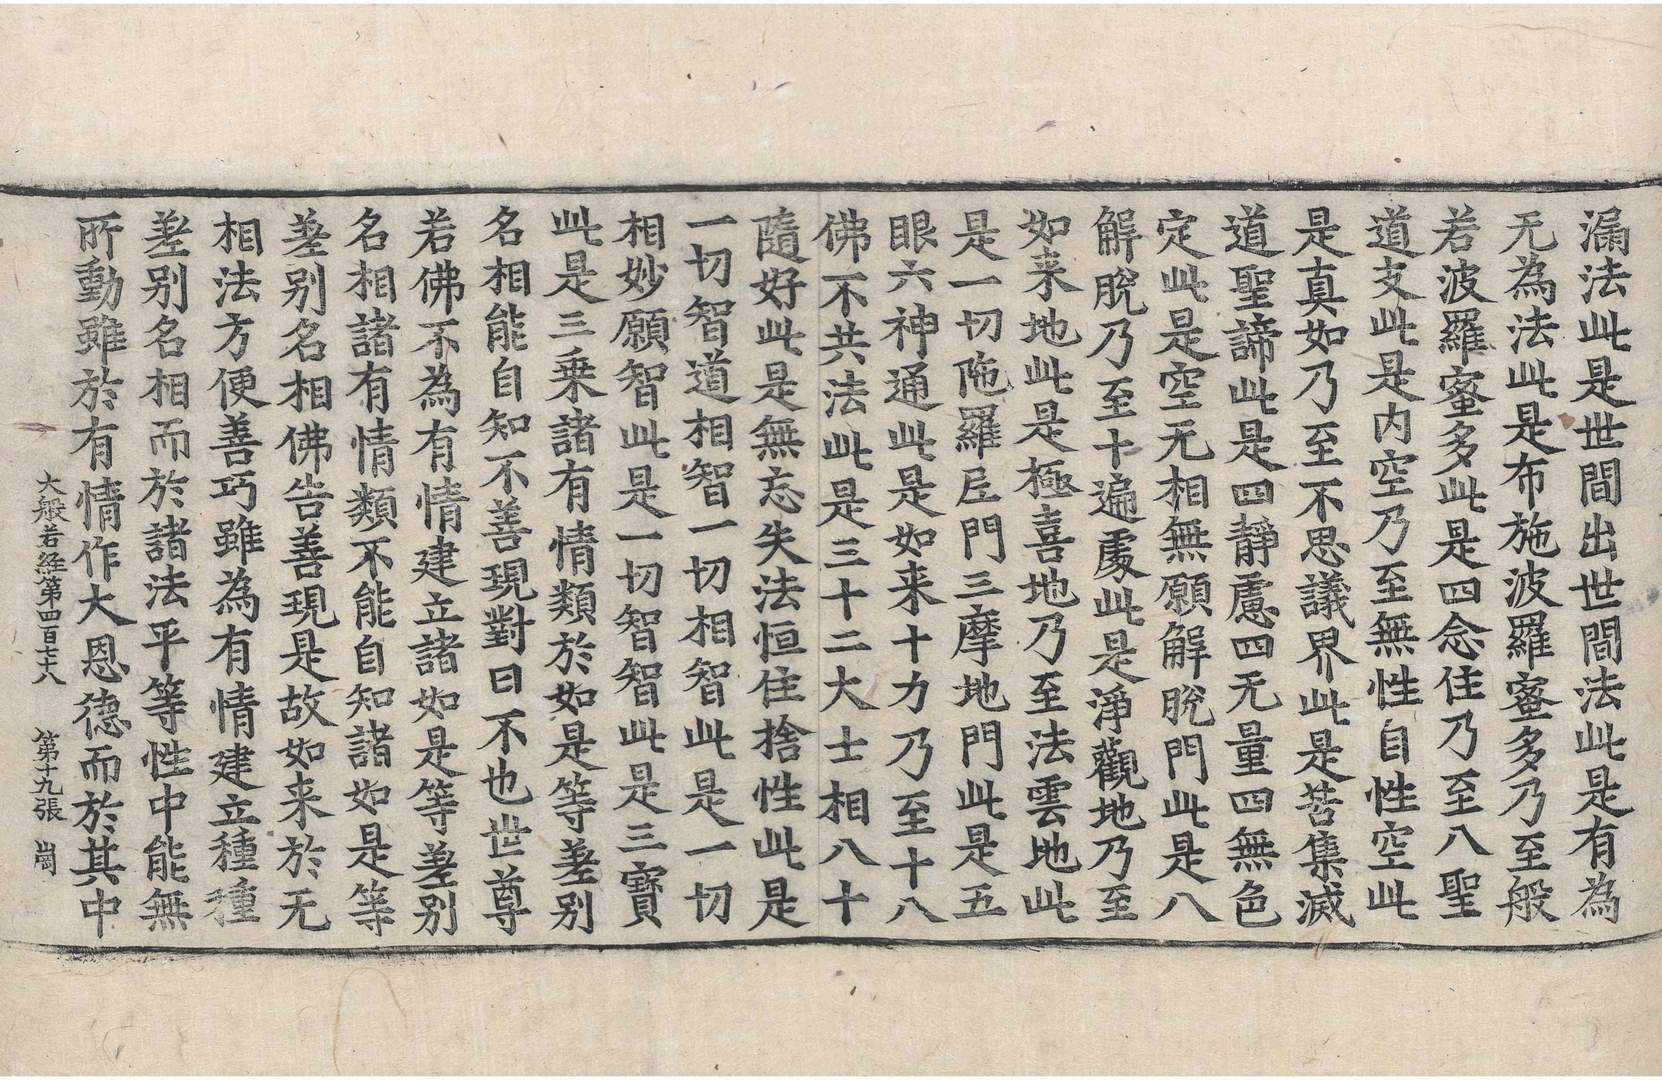 漏法此是世間出世間法此是有為
无為法此是布施波羅蜜多乃至般
若波羅蜜多此是四念住乃至八聖
道支此是内空乃至無性自性空此
是真如乃至不思議界此是苦集滅
道聖諦此是四靜慮四无量四無色
定此是空无相無願解脫門此是八
解脫乃至十遍處此是淨觀地乃至
如来地此是極喜地乃至法雲地此
是一切陁羅尼門三摩地門此是五
眼六神通此是如来十力乃至十八
佛不共法此是三十二大士相八十
隨好此是無忘失法恒住捨性此是
一切智道相智一切相智此是一切
相妙願智此是一切智智此是三寶
此是三乗諸有情類於如是等差别
名相能自知不善現對曰不也世尊
若佛不為有情建立諸如是等差别
名相諸有情類不能自知諸如是等
差别名相佛告善現是故如来於无
相法方便善巧雖為有情建立種種
差别名相而於諸法平等性中能無
所動雖於有情作大恩德而於其中
大般若経第四百七十八 第十九張 崗